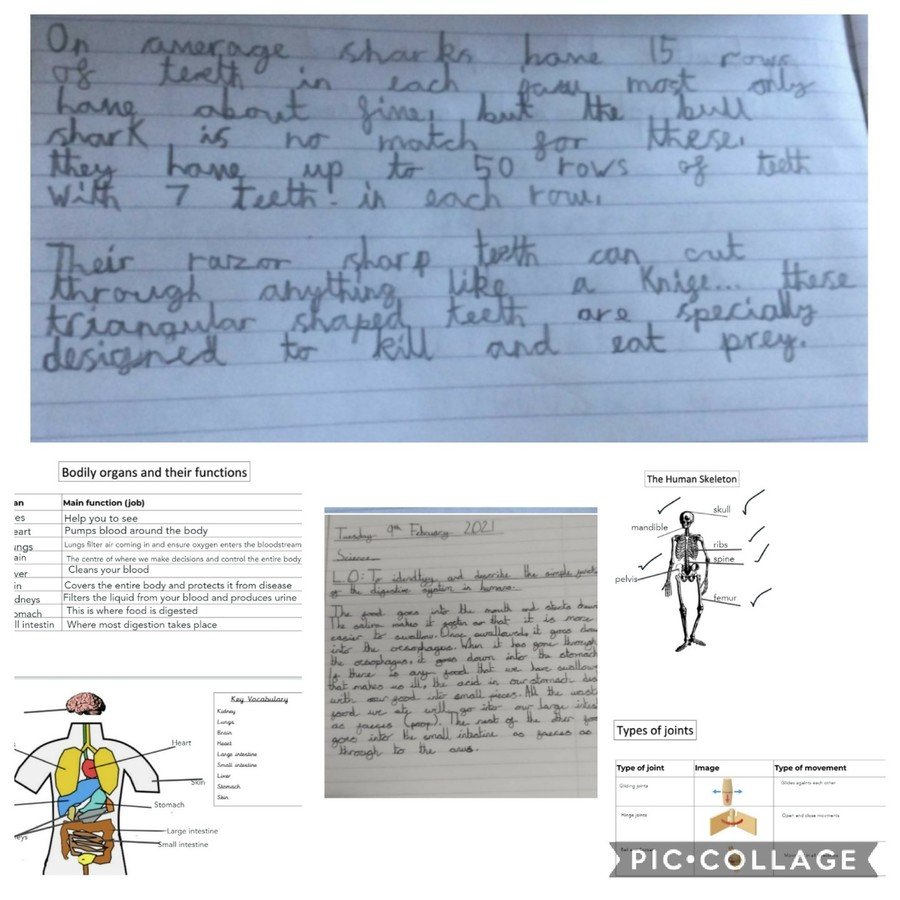 On average sharks have 15 rows
of teeth in each jaw most only
have about five, but the bull
shark is no match for these.
they have up to 50 rows of teeth
with 7 teeth! in each row.
Their razor sharp teeth can cut
through anything like a knife... these
triangular shaped teeth are specially
designed to kill and eat prey.
Bodily organs and their functions
an Main function (job)
es Help you to see
eart Pumps blood around the body
ungs Lungs filter air coming in and ensure oxygen enters the bloodstream
ain The centre of where we make decisions and control the entire body
ver Cleans your blood
in Covers the entire body and protects it from disease
dneys Filters the liquid from your blood and produces urine
omach This is where food is digested
ll intestin Where most digestion takes place
Heart
Skin
Stomach
Large intestine
Small intestine
neys
Key Vocabulary
Kidney
Lungs
Brain
Heart
Large intestine
Small intestine
Liver
Stomach
Skin
Tuesday 9th February 2021
Science
L.O: To identify and describe the simple
of the digestive system in humans.
The food goes into the mouth and starts
The saliva makes it so that it is more
easier to swallow. Once swallowed, it goes down
into the oesophagus. When it has gone through
the oesophagus, it goes down into the stomach
If there is any food that we have swallow
that makes us ill, the acid in our stomach
with our food into small pieces. All the
food we ate will go into our large
as faeces (poop). The rest of the other
goes into the small intestine as faeces
through to the anus.
The Human Skeleton
skull
mandible
ribs
spine
pelvis
femur
Types of joints
Type of joint Image Type of movement
Gliding joints Glides againts each other
Hinge joints Open and close movments
PIC•COLLAGE